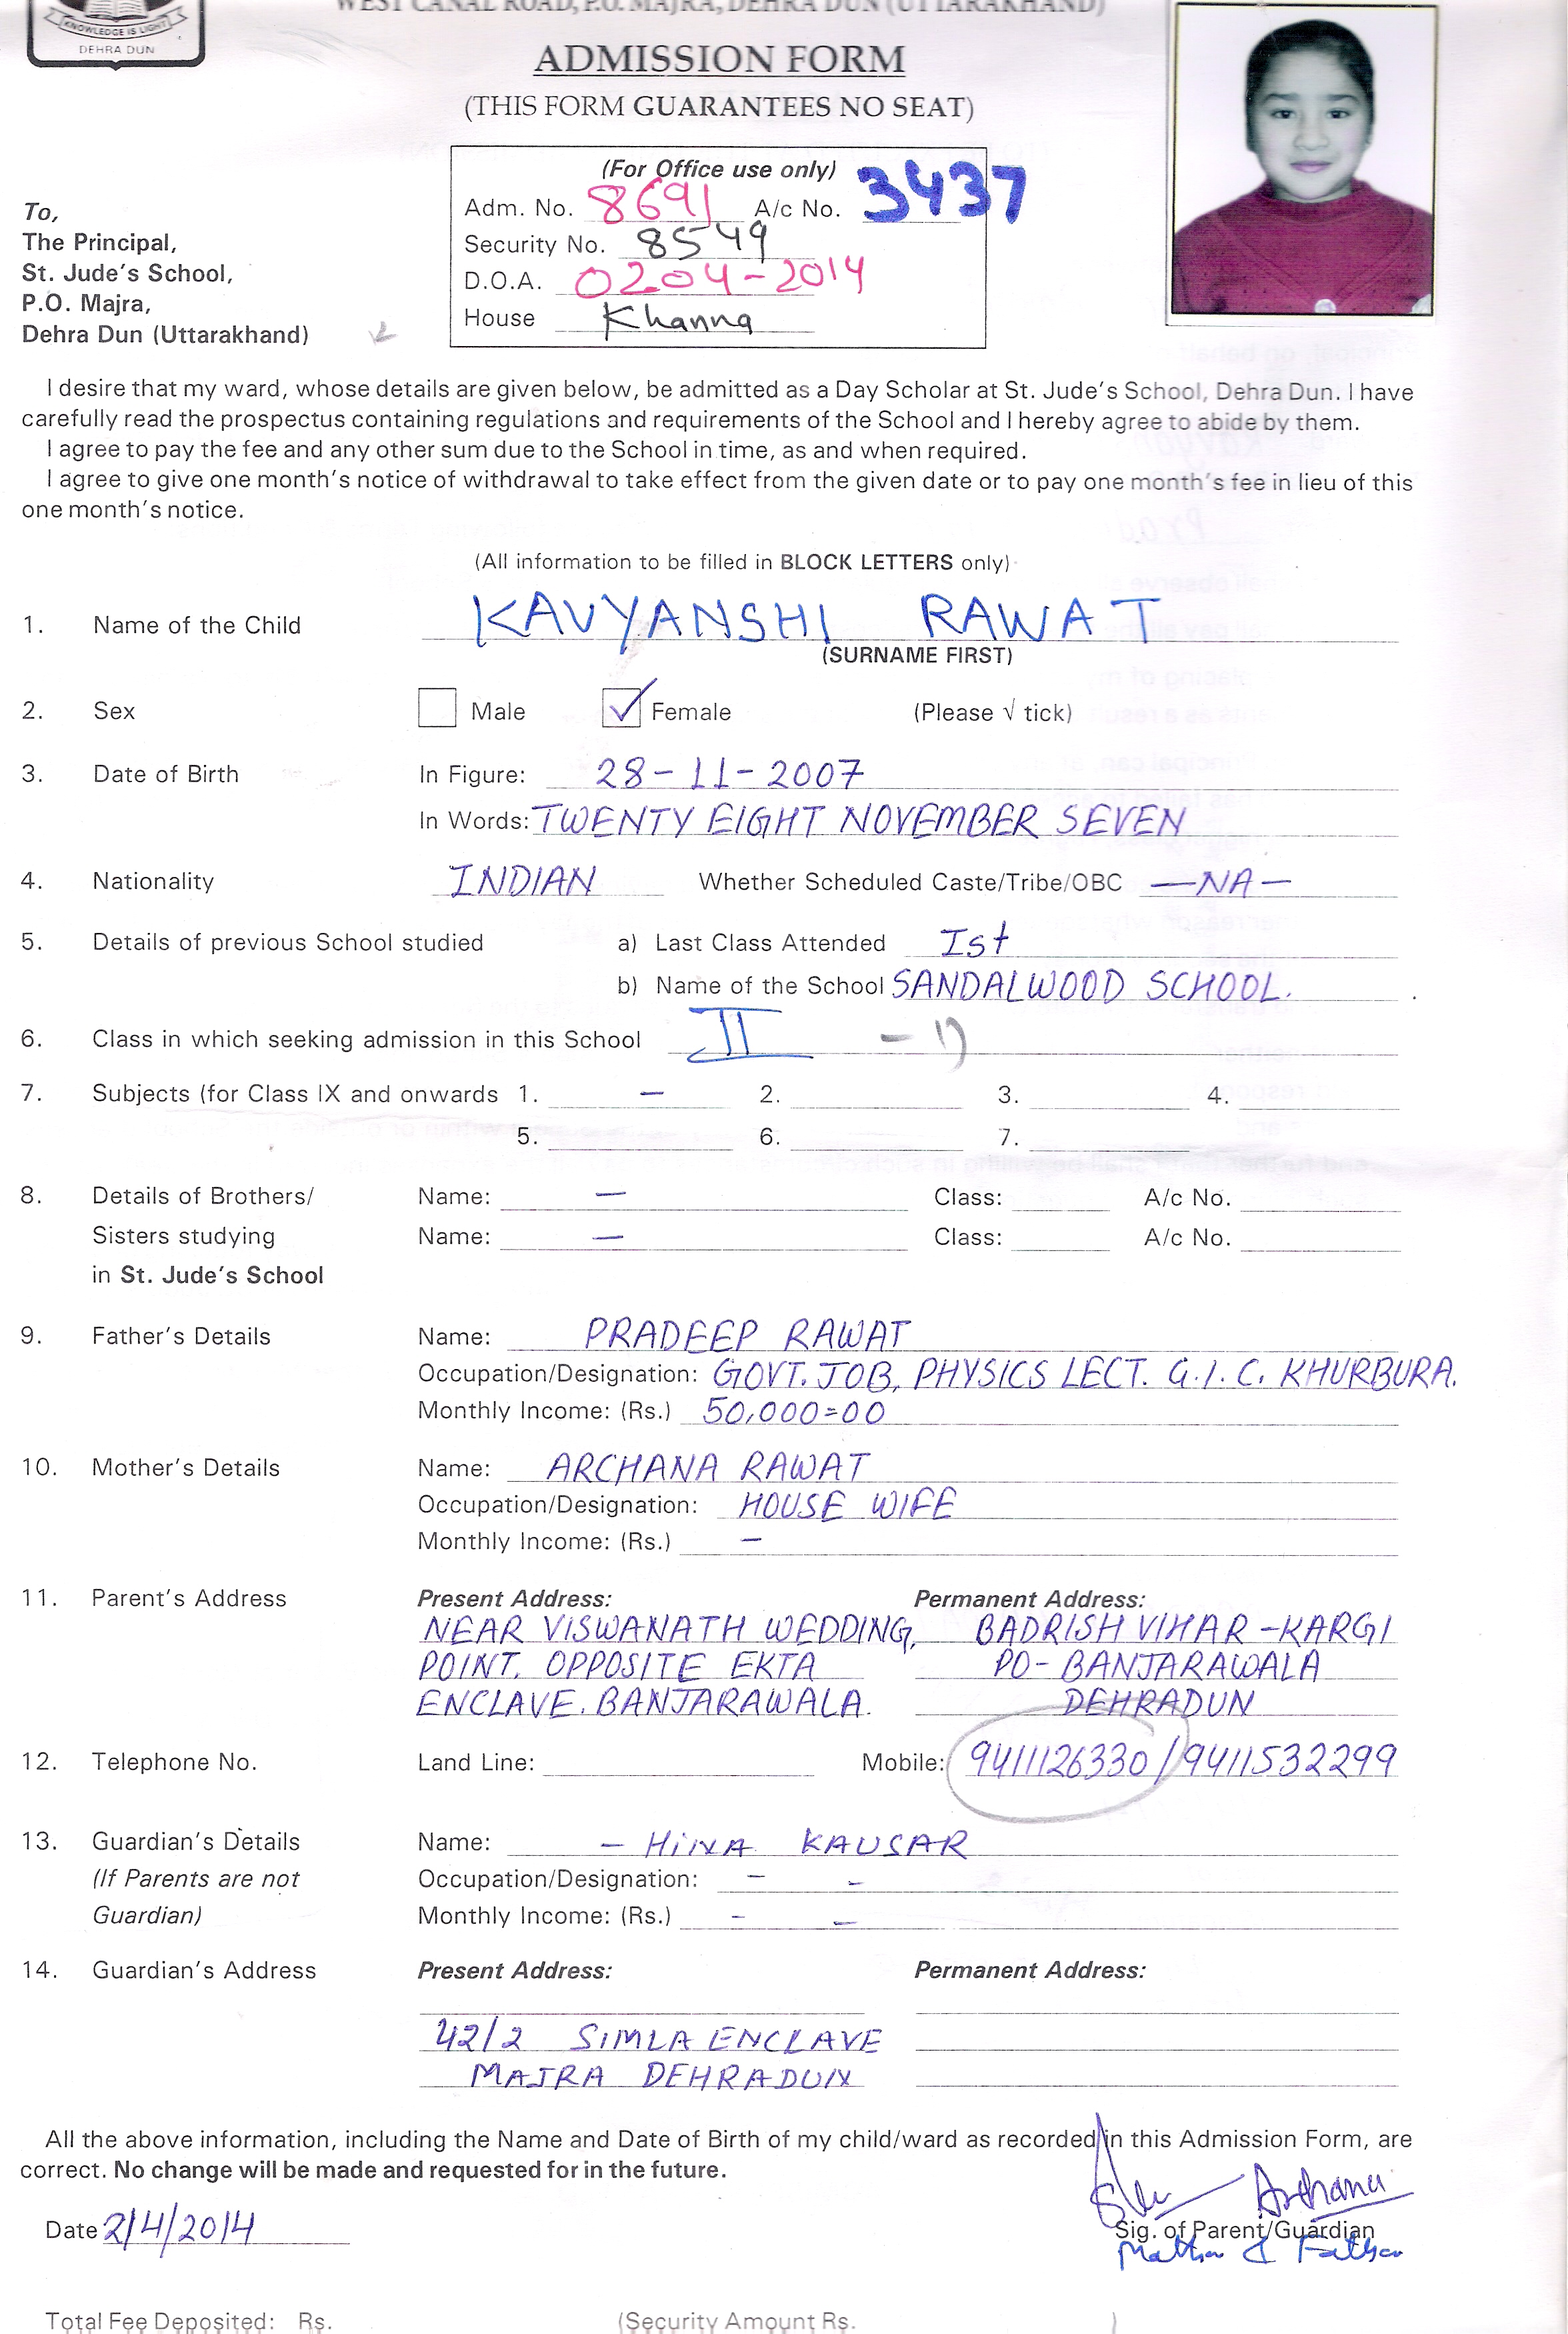 WEST CANAL ROAD, P.O. MAJRA, DEHRA DUN (UTTARAKHAND)
KNOWLEDGE IS LIGHT
DEHRA DUN
ADMISSION FORM
(THIS FORM GUARANTEES NO SEAT)
(For Office use only)
Adm. No. 8691 A/c No. 3437
Security No. 8549
D.O.A. 0204-2014
House Khanna
To,
The Principal,
St. Jude's School,
P.O. Majra,
Dehra Dun (Uttarakhand)
I desire that my ward, whose details are given below, be admitted as a Day Scholar at St. Jude's School, Dehra Dun. I have
carefully read the prospectus containing regulations and requirements of the School and I hereby agree to abide by them.
I agree to pay the fee and any other sum due to the School in time, as and when required.
I agree to give one month's notice of withdrawal to take effect from the given date or to pay one month's fee in lieu of this
one month's notice.
(All information to be filled in BLOCK LETTERS only)
1. Name of the Child KAVYANSHI RAWAT
(SURNAME FIRST)
2. Sex Male Female (Please √ tick)
3. Date of Birth In Figure: 28-11-2007
In Words: TWENTY EIGHT NOVEMBER SEVEN
4. Nationality INDIAN Whether Scheduled Caste/Tribe/OBC —NA—
5. Details of previous School studied a) Last Class Attended Ist
b) Name of the School SANDALWOOD SCHOOL.
6. Class in which seeking admission in this School II
7. Subjects (for Class IX and onwards 1. — 2. 3. 4.
5. 6. 7.
8. Details of Brothers/ Name: — Class: A/c No.
Sisters studying Name: — Class: A/c No.
in St. Jude's School
9. Father's Details Name: PRADEEP RAWAT
Occupation/Designation: GOVT. JOB, PHYSICS LECT. G.I.C. KHURBURA.
Monthly Income: (Rs.) 50,000=00
10. Mother's Details Name: ARCHANA RAWAT
Occupation/Designation: HOUSE WIFE
Monthly Income: (Rs.) —
11. Parent's Address Present Address: Permanent Address:
NEAR VISWANATH WEDDING, BADRISH VIHAR -KARGI
POINT, OPPOSITE EKTA PO- BANJARAWALA
ENCLAVE. BANJARAWALA. DEHRADUN
12. Telephone No. Land Line: Mobile: 9411126330/9411532299
13. Guardian's Details Name: — HINA KAUSAR
(If Parents are not Occupation/Designation: — —
Guardian) Monthly Income: (Rs.) — —
14. Guardian's Address Present Address: Permanent Address:
42/2 SIMLA ENCLAVE
MAJRA DEHRADUN
All the above information, including the Name and Date of Birth of my child/ward as recorded in this Admission Form, are
correct. No change will be made and requested for in the future.
Archana
Date 2/4/2014 Sig. of Parent/Guardian
Mother & Father
Total Fee Deposited: Rs. (Security Amount Rs. )